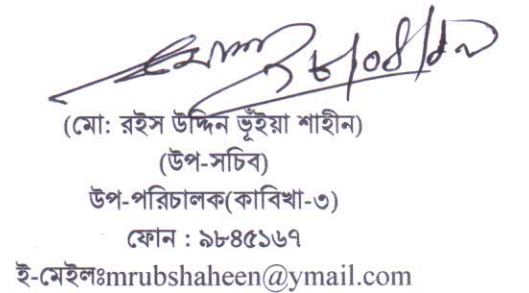 (মো: রইস উদ্দিন ভূঁইয়া শাহীন)
(উপ-সচিব)
উপ-পরিচালক(কাবিখা-৩)
ফোন : ৯৮৪৫১৬৭
ই-মেইলঃmrubshaheen@ymail.com